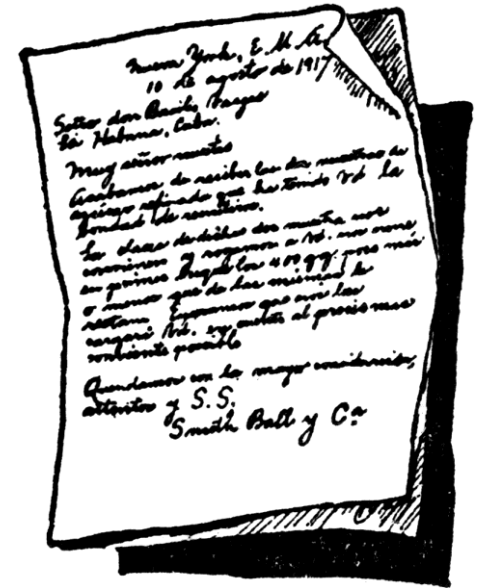 Nueva York, E. U. A.
10 de agosto de 1917
Señor don Basilio Vargas
La Habana, Cuba.
Muy señor nuestro
Acabamos de recibir las dos muestras de
azúcar refinada que ha tenido Vd la
bondad de remitirnos.
La clase de dichas dos muestras nos
conviene y rogamos a Vd. nos envie
en primer buque los 409 qq. poco más
o menos que de las mismas le
restan. Esperamos que nos las
cargará Vd. en cuenta al precio mas
conveniente posible
Quedamos con la mayor consideración,
attentos y S. S.
Smith Ball y Cª